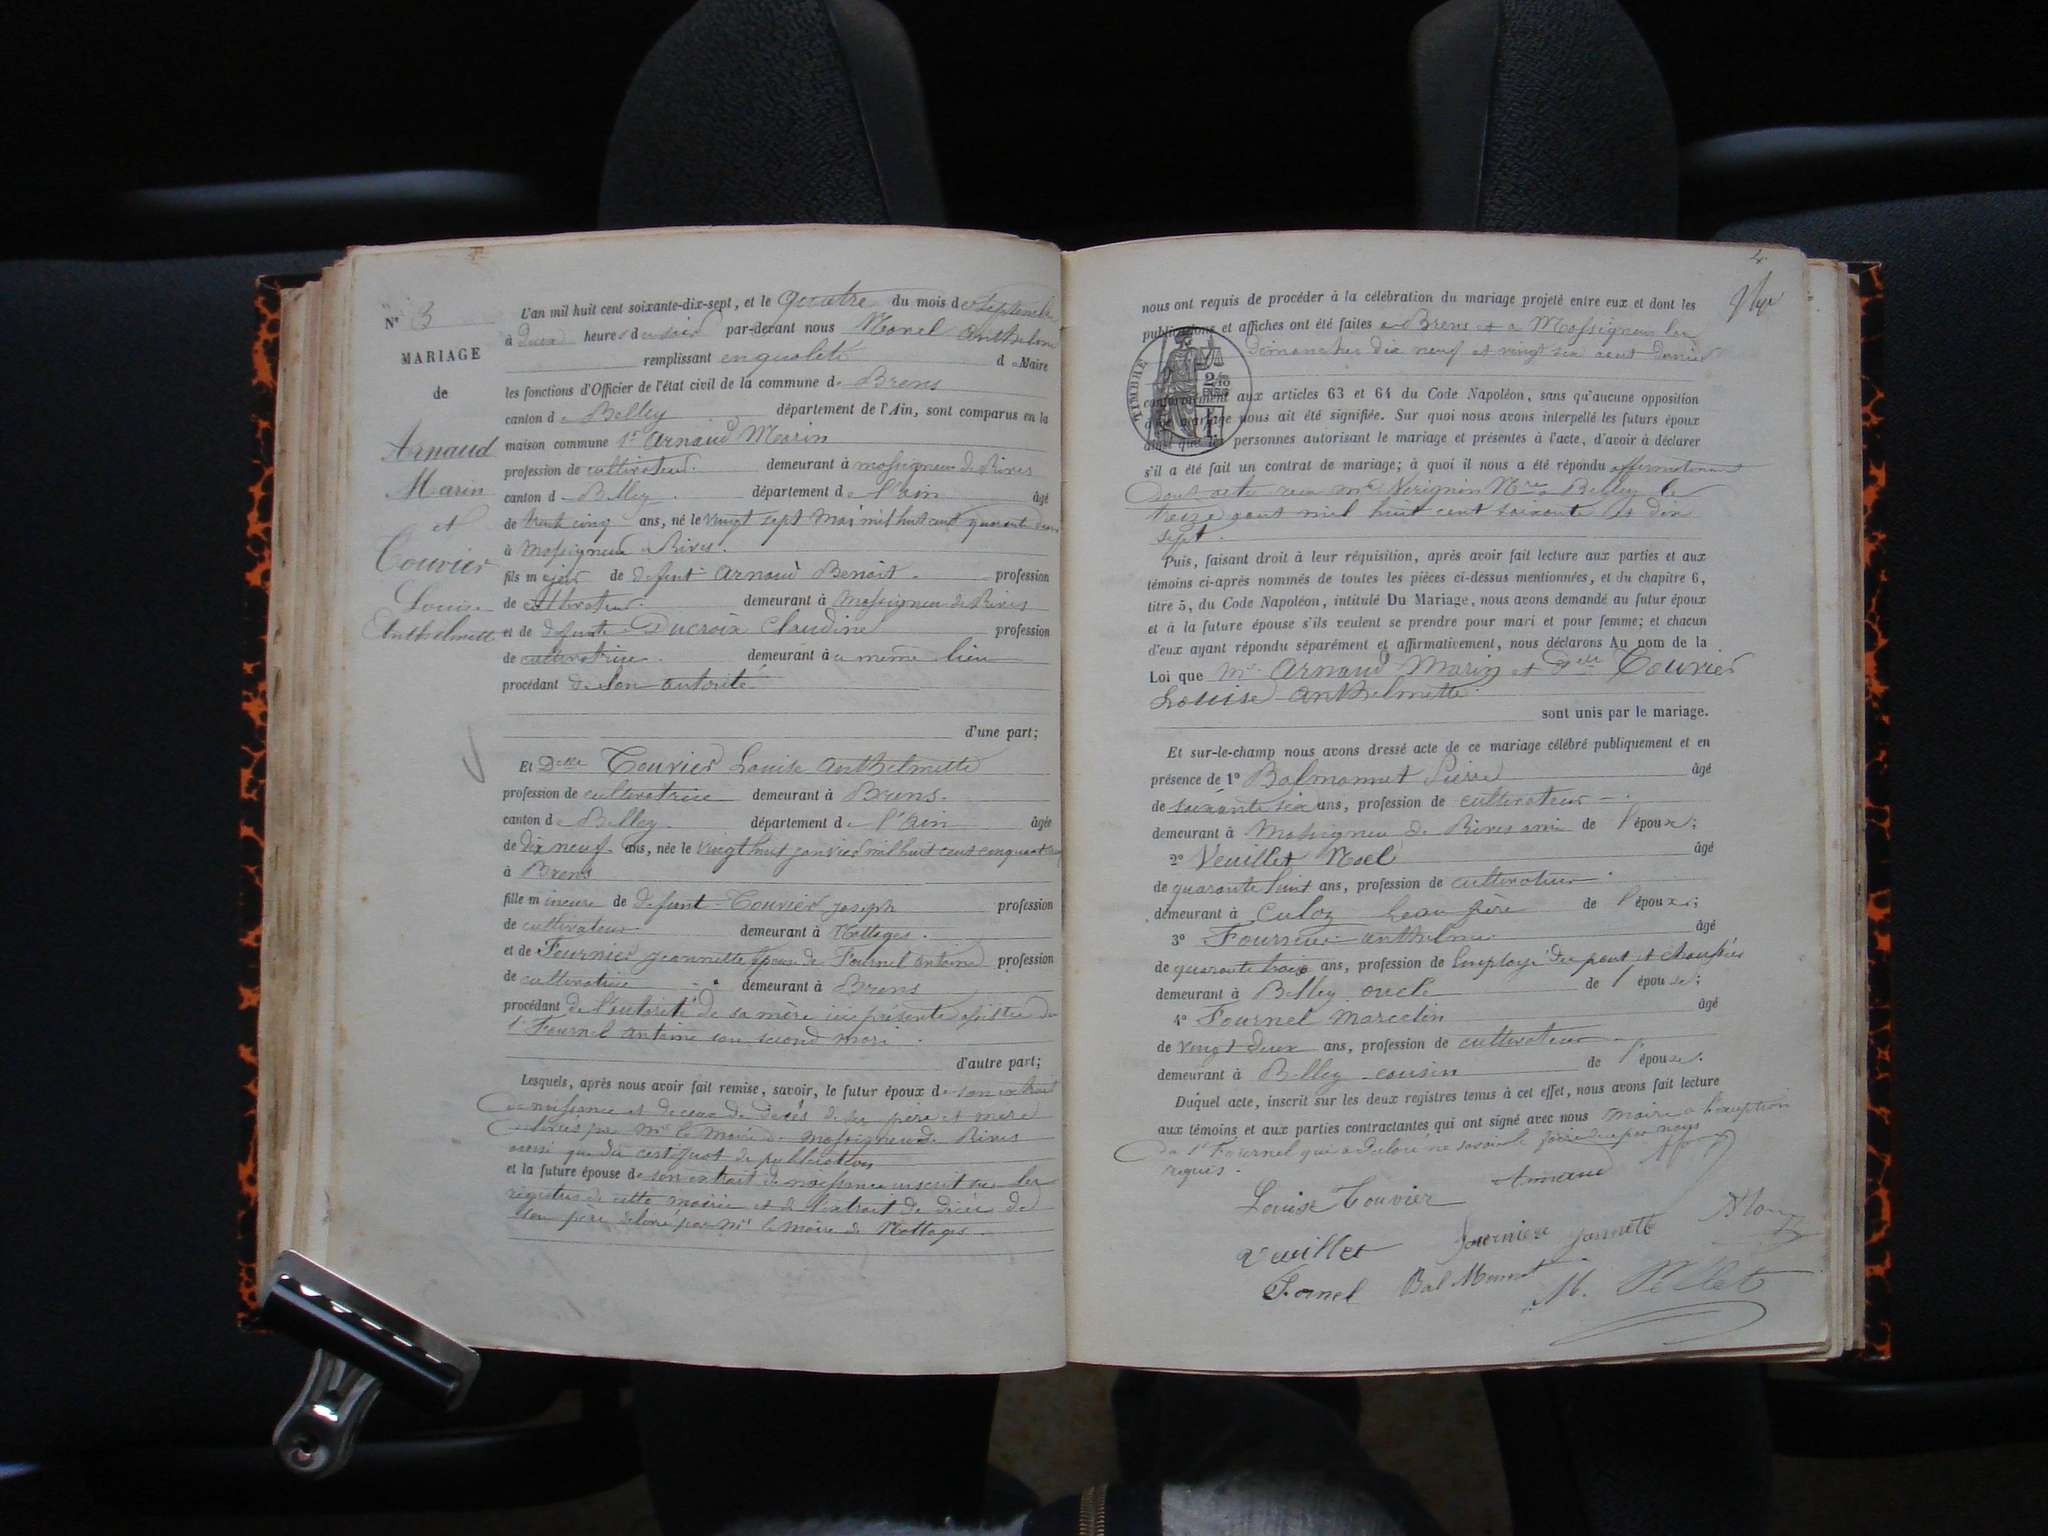 N° 3
MARIAGE
de
Arnaud
Marin
et
Touvier
Louise
Anthelmette
L'an mil huit cent soixante-dix-sept, et le quatre du mois de Septembre
à Deux heures du soir par-devant nous Morel Anthelme
remplissant en qualité de Maire
les fonctions d'Officier de l'état civil de la commune de Brens
canton de Belley département de l'Ain, sont comparus en la
maison commune 1° Arnaud Marin
profession de cultivateur demeurant à Massigneu de Rives
canton de Belley département de l'ain âgé
de trente cinq ans, né le vingt sept Mai mil huit cent quarante deux
à Massigneu de Rives.
fils majeur de defunt Arnaud Benoit profession
de cultivateur demeurant à Massigneu de Rives
et de defunte Ducroix Claudine profession
de cultivatrice demeurant à même lieu
procédant de son autorité
d'une part;
Et Delle Touvier Louise Anthelmette
profession de cultivatrice demeurant à Brens.
canton de Belley département de l'ain âgée
de dix neuf ans, née le vingt huit janvier mil huit cent cinquante
à Brens
fille mineure de defunt Touvier Joseph profession
de cultivateur demeurant à Nattages.
et de Fournier Jeannette épouse de Fournel Antoine profession
de cultivatrice demeurant à Brens
procédant de l'autorité de sa mère ici présente assistée du
Sr Fournel Antoine son second mari
d'autre part;
Lesquels, après nous avoir fait remise, savoir, le futur époux de son extrait
de naissance et de ceux de décès de ses père et mère
délivrés par Mr le Maire de Massigneu de Rives
ainsi que du certificat de publication
et la future épouse de son extrait de naissance inscrit sur les
registres de cette mairie et de l'extrait de décès de
son père délivré par Mr le Maire de Nattages.
4
nous ont requis de procéder à la célébration du mariage projeté entre eux et dont les
publications et affiches ont été faites à Brens et à Massigneu les
dimanches dix neuf et vingt six aout dernier
TIMBRE
conformément aux articles 63 et 64 du Code Napoléon, sans qu'aucune opposition
à ce mariage nous ait été signifiée. Sur quoi nous avons interpellé les futurs époux
ainsi que les personnes autorisant le mariage et présentes à l'acte, d'avoir à déclarer
s'il a été fait un contrat de mariage; à quoi il nous a été répondu affirmativement
dont acte reçu Me Nre à Belley le
treize aout mil huit cent soixante et dix
sept.
Puis, faisant droit à leur réquisition, après avoir fait lecture aux parties et aux
témoins ci-après nommés de toutes les pièces ci-dessus mentionnées, et du chapitre 6,
titre 5, du Code Napoléon, intitulé Du Mariage, nous avons demandé au futur époux
et à la future épouse s'ils veulent se prendre pour mari et pour femme; et chacun
d'eux ayant répondu séparément et affirmativement, nous déclarons Au nom de la
Loi que Mr Arnaud Marin et Delle Touvier
Louise Anthelmette
sont unis par le mariage.
Et sur-le-champ nous avons dressé acte de ce mariage célébré publiquement et en
présence de 1° Balmonnet Pierre âgé
de soixante six ans, profession de cultivateur
demeurant à Massigneu de Rives ami de l'époux;
2° Veuillet Noël âgé
de quarante huit ans, profession de cultivateur
demeurant à Culoz beau frère de l'époux;
3° Fournier Anthelme âgé
de quarante trois ans, profession de Employé des pont et chaussées
demeurant à Belley oncle de l'épouse;
4° Fournel Marcelin âgé
de vingt deux ans, profession de cultivateur
demeurant à Belley cousin de l'épouse.
Duquel acte, inscrit sur les deux registres tenus à cet effet, nous avons fait lecture
aux témoins et aux parties contractantes qui ont signé avec nous maire à l'exception
du Sr Fournel qui a déclaré ne savoir le faire de ce par nous
requis.
Louise Touvier
Arnaud
Veuillet
Fournier Jannette
Fornel
Bal Monnet
M. Pellet